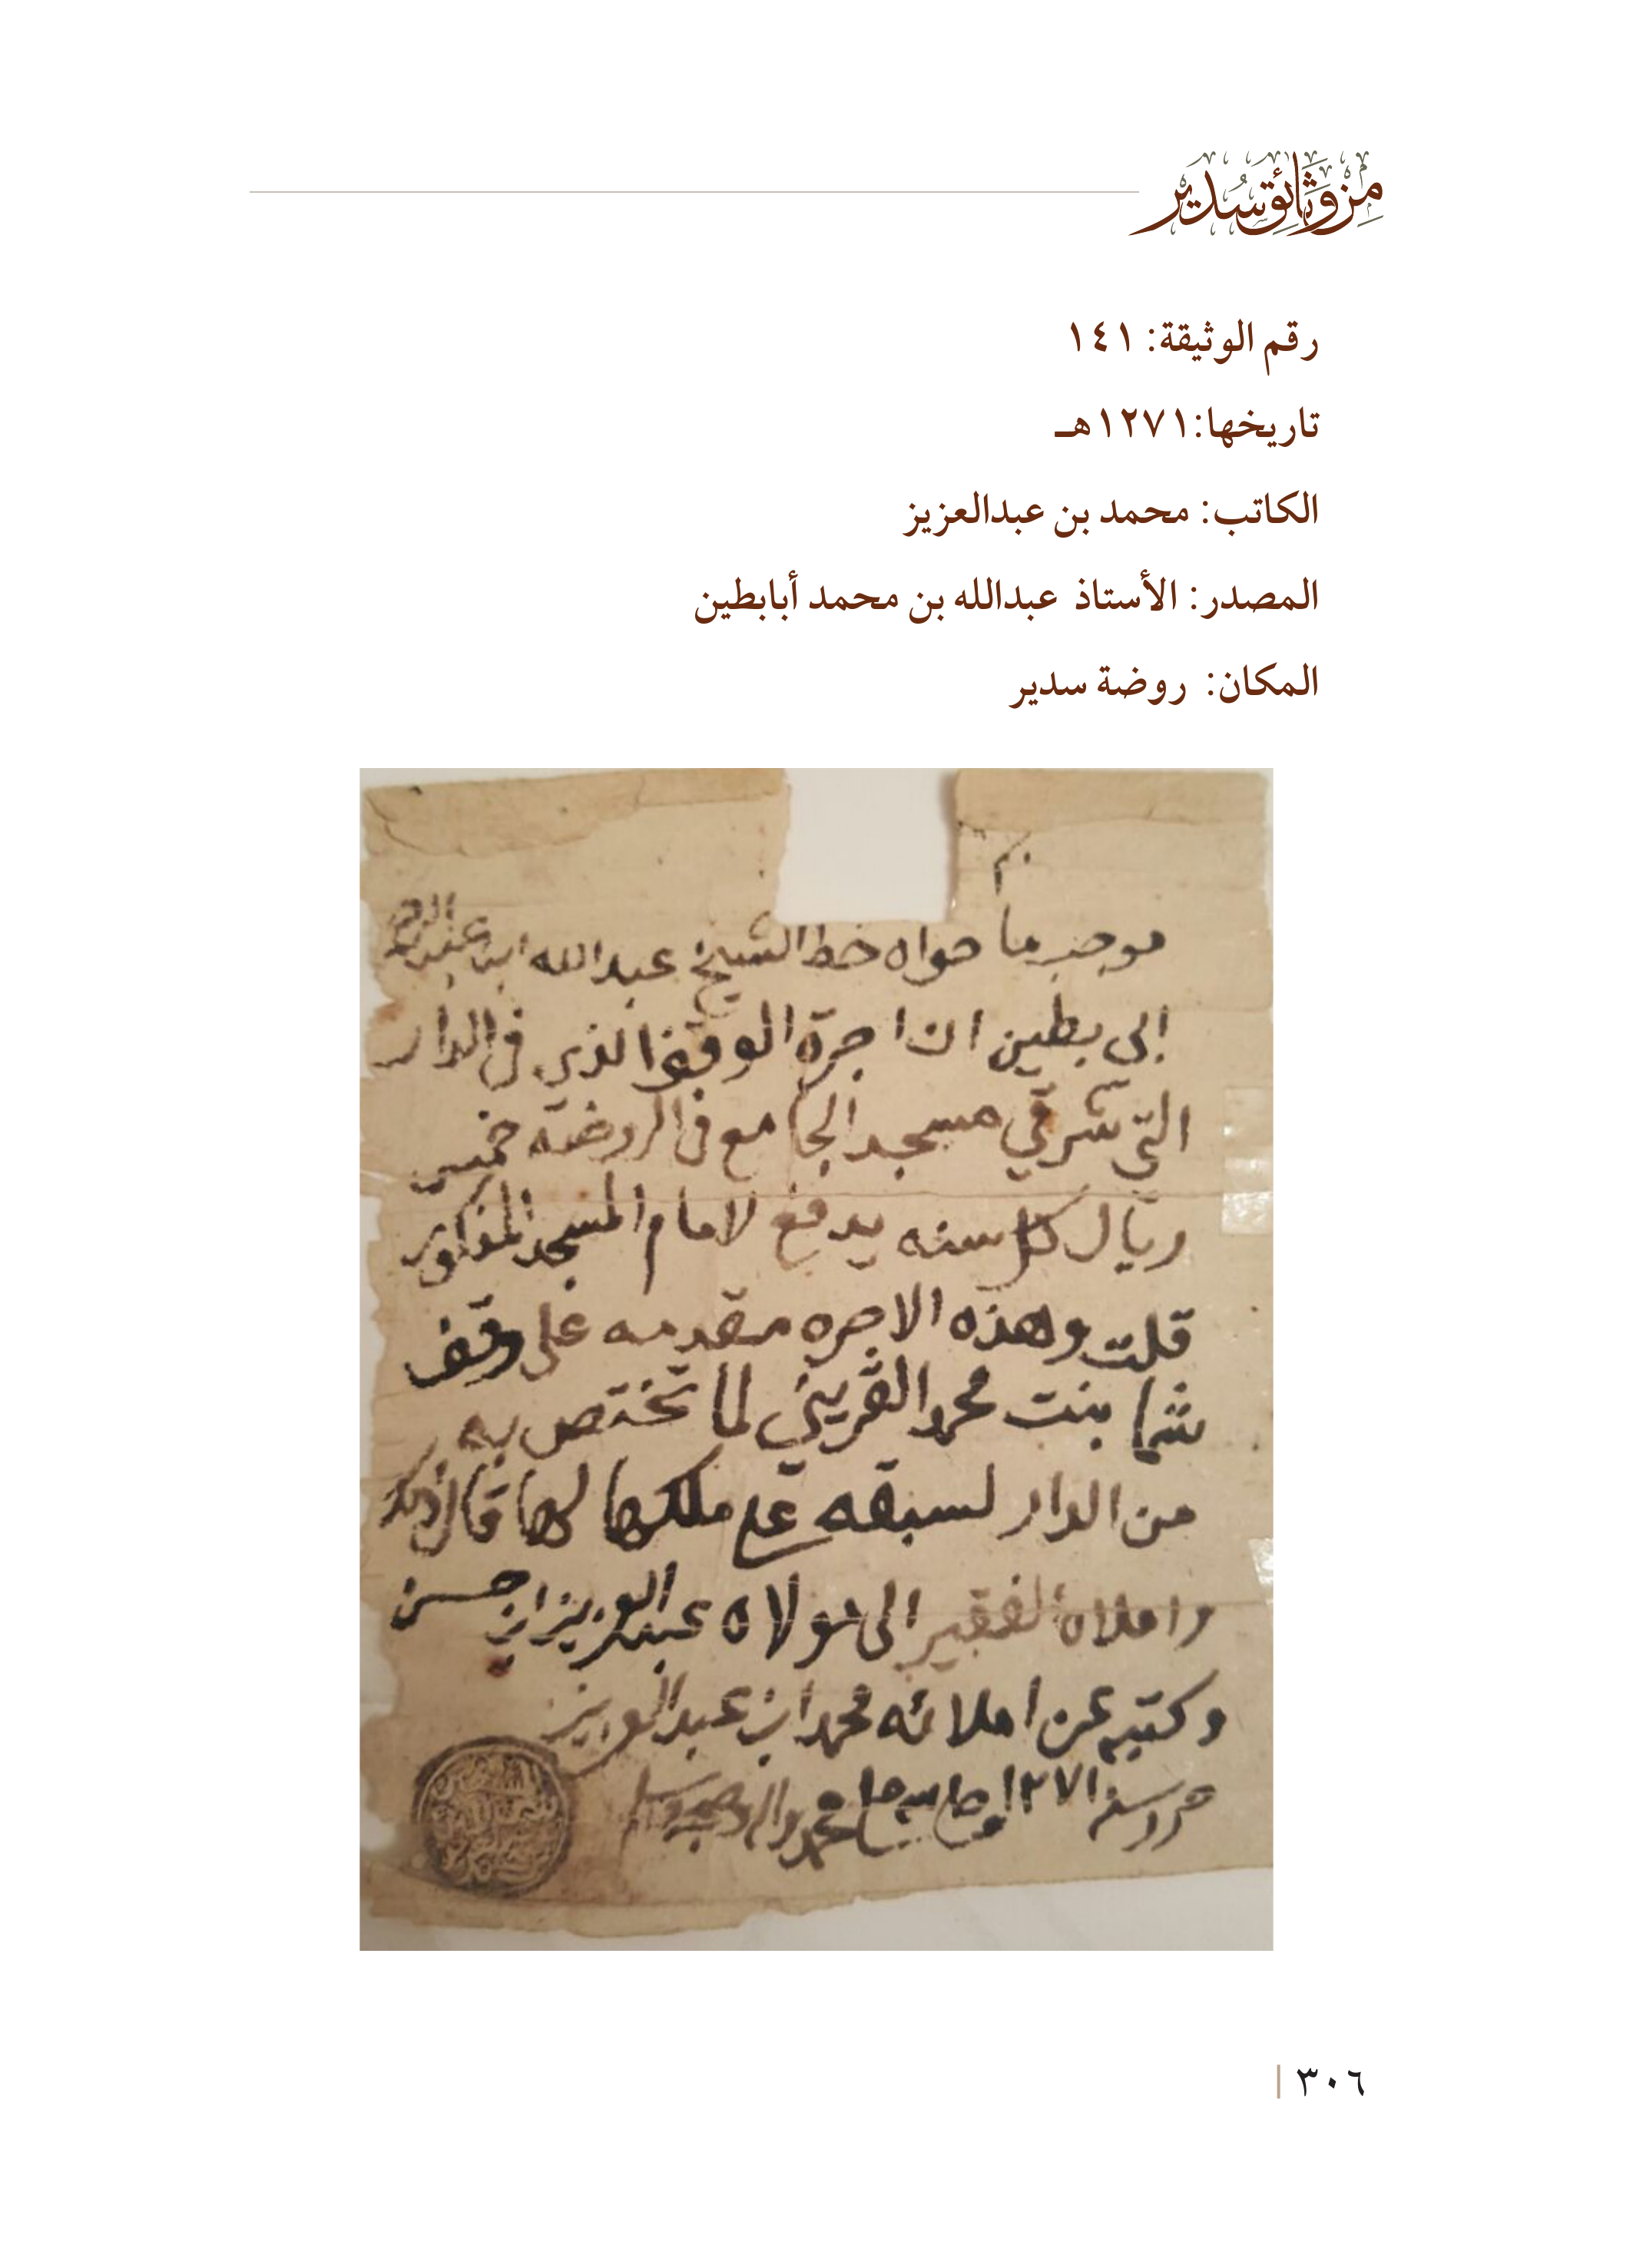 من وثائق سدير
رقم الوثيقة: ١٤١
تاريخها:١٢٧١هـ
الكاتب: محمد بن عبدالعزيز
المصدر: الأستاذ عبدالله بن محمد أبابطين
المكان: روضة سدير
موجب ما حواه خط الشيخ عبدالله ابن عبدالرحمن
ابى بطين ان اجرة الوقف الذي في الدار
التي شرقي مسجد الجامع في الروضة خمس
ريال كل سنه يدفع لامام المسجد المذكور
قلت وهذه الاجره مقدمه على وقف
شما بنت محمد القريني لما تختص به
من الدار لسبقه على ملكها لها قال ذلك
واملاه الفقير الى مولاه عبدالعزيز ابن حسن
وكتبه عن املائه محمد ابن عبدالعزيز
حرر سنه ١٢٧١ وصلى الله على محمد واله وصحبه وسلم
٣٠٦